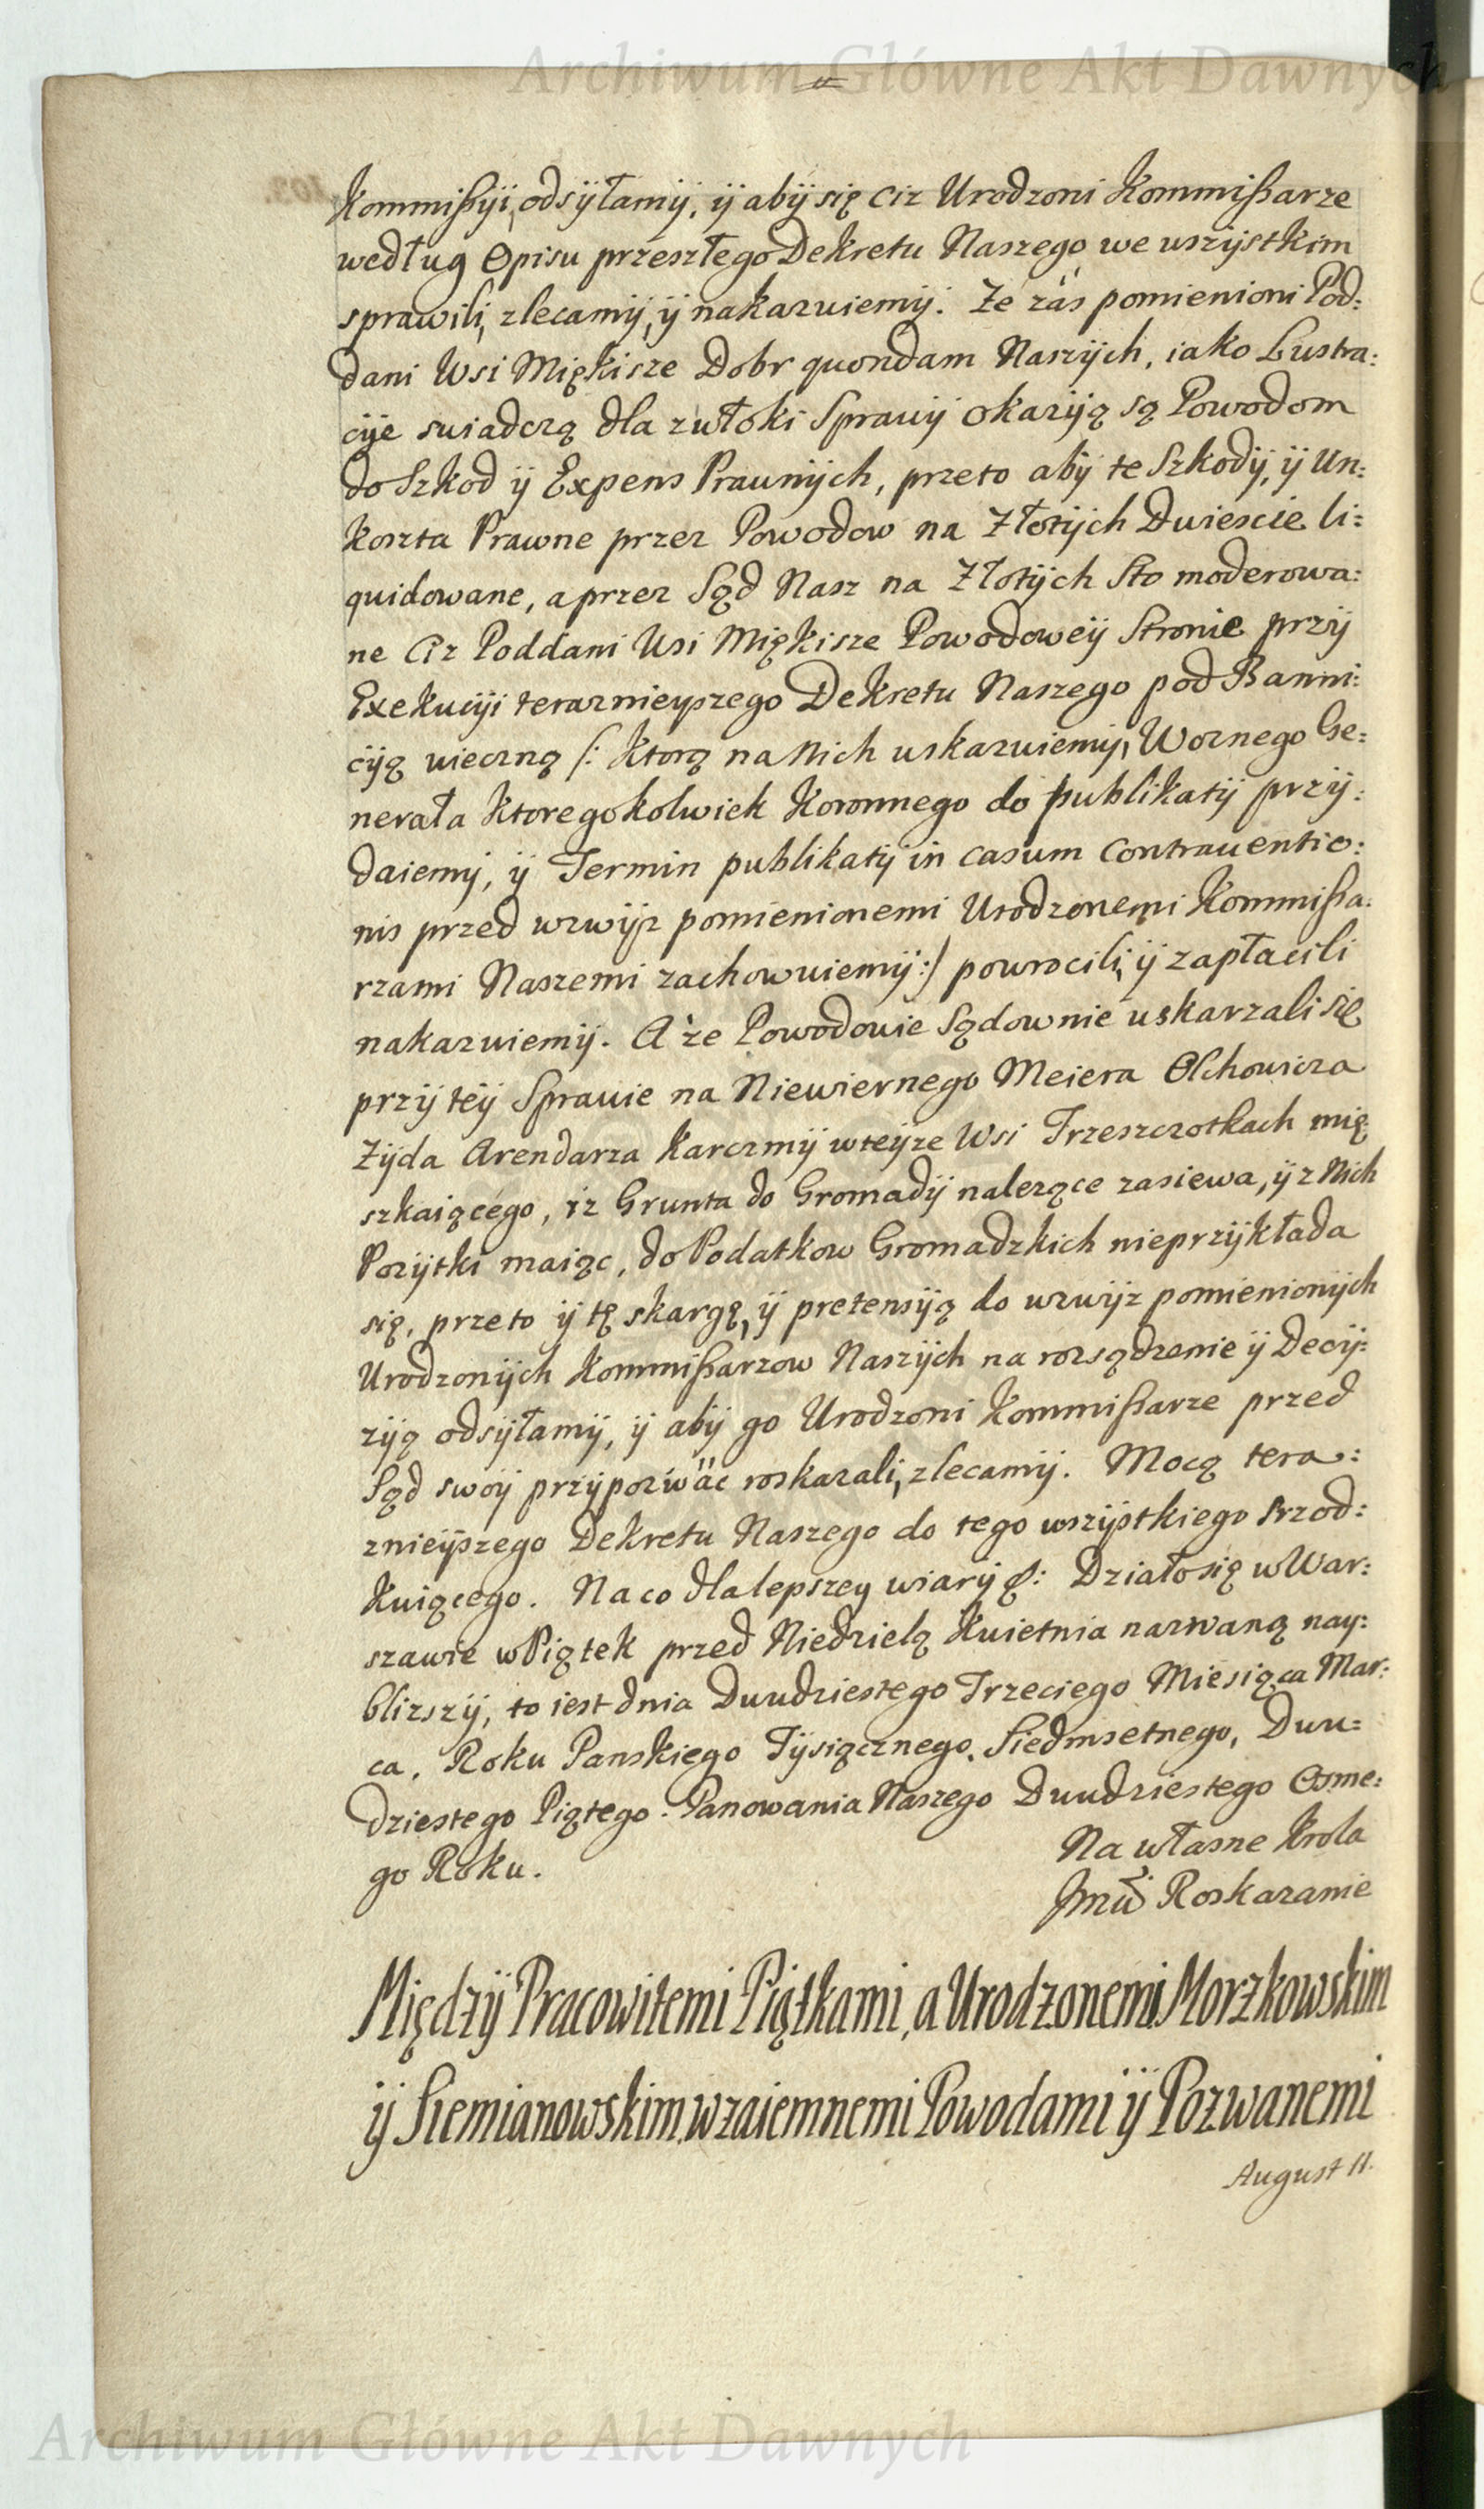 Archiwum Główne Akt Dawnych
Kommißyi, odsÿłamÿ, ÿ abÿ się ciz Urodzeni Kommißarze
według Opisu przeszłego Dekretu Naszego we wszÿstkim
sprawili, zlecamÿ, ÿ nakazuiemÿ. Ze zas pomienioni Pod:
dani Wsi Miękisze Dobr quondam Naszÿch, iako Lustra:
cÿe swiadczą dla zwłoki Sprawÿ okazÿą są Powodom
do Szkod ÿ Expens Prawnÿch, przeto abÿ te Szkodÿ, ÿ Un:
koszta Prawne przez Powodow na Złotÿch Dwiescie li:
quidowane, a przez Sąd Nasz na Złotÿch Sto moderowa:
ne Ciz Poddani Wsi Miękisze Powodoweÿ Stronie przÿ
Exekucÿi teraznieyszego Dekretu Naszego pod Banni:
cÿą wieczną /: ktorą na Nich wskazuiemÿ, Woznego Ge:
nerała ktoregokolwiek Koronnego do publikatÿ przÿ:
daiemÿ, ÿ Termin publikatÿ in casum contrauentio:
nis przed wzwÿz pomienionemi Urodzonemi Kommißa:
rzami Naszemi zachowuiemÿ :/ powrocili, ÿ zapłacili
nakazuiemÿ. A ze Powodowie Sądownie uskarzali się
przÿ teÿ Sprawie na Niewiernego Meiera Olchowicza
Zÿda Arendarza karczmÿ w teÿze Wsi Trzeszczotkach mię:
szkaiącego, iz Grunta do Gromadÿ nalezące zasiewa, ÿ z Nich
Pozÿtki maiąc, do Podatkow Gromadzkich nieprzÿkłada
się, przeto ÿ tę skargę, ÿ pretensÿą do wzwÿz pomienionÿch
Urodzonÿch Kommißarzow Naszÿch na rozsądzenie ÿ Decÿ:
zÿą odsÿłamÿ, ÿ abÿ go Urodzoni Kommißarze przed
Sąd swoÿ przÿpozwac roskazali, zlecamÿ. Mocą tera:
znieÿszego Dekretu Naszego do tego wszÿstkiego srzod:
kuiącego. Na co dla lepszey wiarÿ &: Działo się w War:
szawie w Piątek przed Niedzielą Kwietnia nazwaną nay:
blizszÿ, to iest dnia Dwudziestego Trzeciego Miesiąca Mar:
ca, Roku Panskiego Tÿsiącznego, Siedmsetnego, Dwu:
dziestego Piątego. Panowania Naszego Dwudziestego Osme:
go Roku.
Na własne Krola
Jmci Roskazanie
Międzÿ Pracowitemi Piątkami, a Urodzonemi Morzkowskim
ÿ Siemianowskim wzaiemnemi Powodami ÿ Pozwanemi
August II.
Archiwum Główne Akt Dawnych